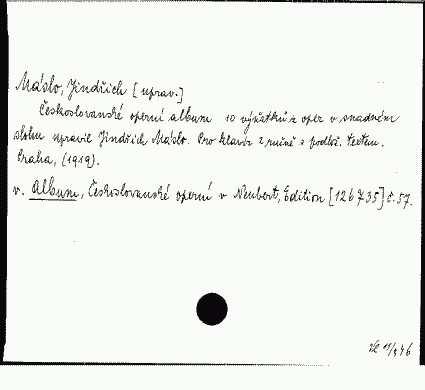 Máslo, Jindřich [uprav.]
Českoslovanské operní album 10 výňatků z oper v snadném
slohu upravil Jindřich Máslo. Pro klavír 2 ručně s podlož. textem.
Praha, (1919).
v. Album, Českoslovanské operní v Neubert, Edition [126735] č. 57.